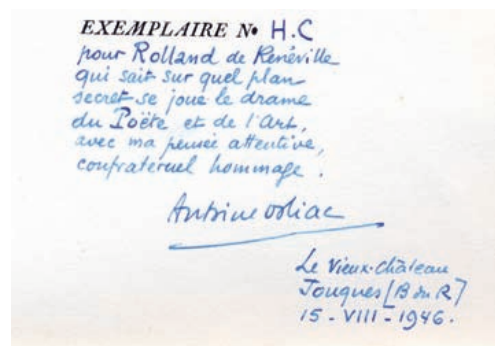 EXEMPLAIRE No H.C
pour Rolland de Renéville
qui sait sur quel plan
secret se joue le drame
du Poëte et de l'Art,
avec ma pensée attentive,
confraternel hommage.
Antoine Orliac
Le Vieux-Château
Jouques [B du R]
15 - VIII - 1946.